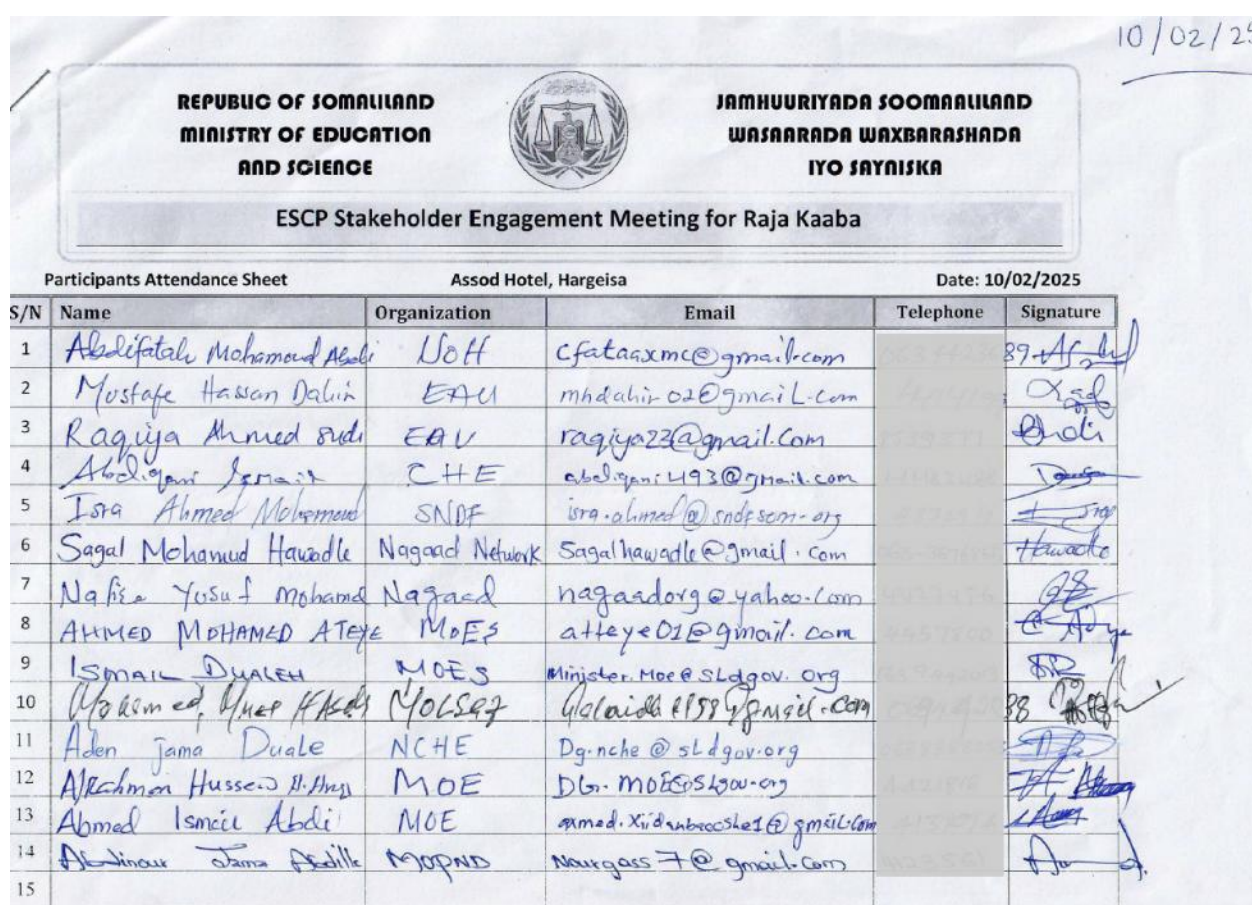 10/02/25
REPUBLIC OF SOMALILAND
MINISTRY OF EDUCATION
AND SCIENCE
JAMHUURIYADA SOOMAALILAND
WASAARADA WAXBARASHADA
IYO SAYNISKA
ESCP Stakeholder Engagement Meeting for Raja Kaaba
Participants Attendance Sheet Assod Hotel, Hargeisa Date: 10/02/2025
S/N Name Organization Email Telephone Signature
1 Abdifatah Mohamoud Abdi UoH cfataaxmc@gmail.com 89
2 Mustafe Hassan Dahir EAU mhdahir02@gmail.com
3 Raqiya Ahmed EAU raqiya22@gmail.com
4 Abdiqani Ismail CHE abdiqani493@gmail.com
5 Isra Ahmed Mohamoud SNDF isra.ahmed@sndfsom.org
6 Sagal Mohamud Hawadle Nagaad Network Sagalhawadle@gmail.com Hawadle
7 Nafisa Yusuf Mohamed Nagaad nagaadorg@yahoo.com
8 AHMED MOHAMED ATEYE MoES atteye01@gmail.com
9 ISMAIL DUALEH MOES Minister.Moe@sldgov.org
10 Mohamed 38
11 Aden Jama Duale NCHE Dg.nche@sldgov.org
12 Hussein MOE
13 Ahmed Ismail Abdi MOE
14 Abdinour Jama Abdille MOPND Nourgass7@gmail.com
15